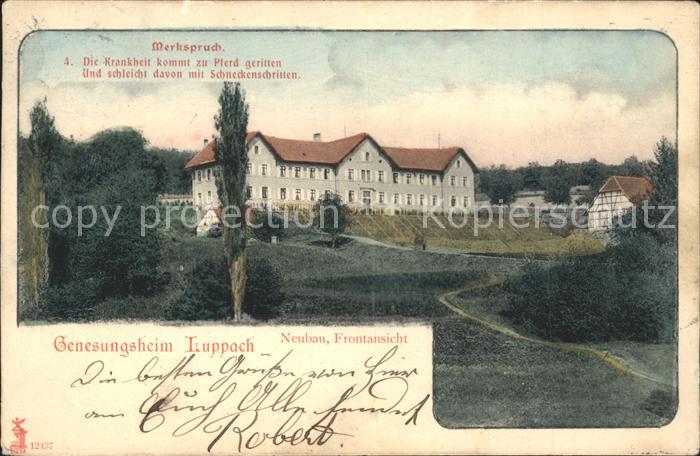 Merkspruch.
4. Die Krankheit kommt zu Pferd geritten
Und schleicht davon mit Schneckenschritten.
copy protect Kopierschutz
Genesungsheim Luppach Neubau, Frontansicht
Die besten Grüße von hier
an Euch Alle sendet
Robert.
12437